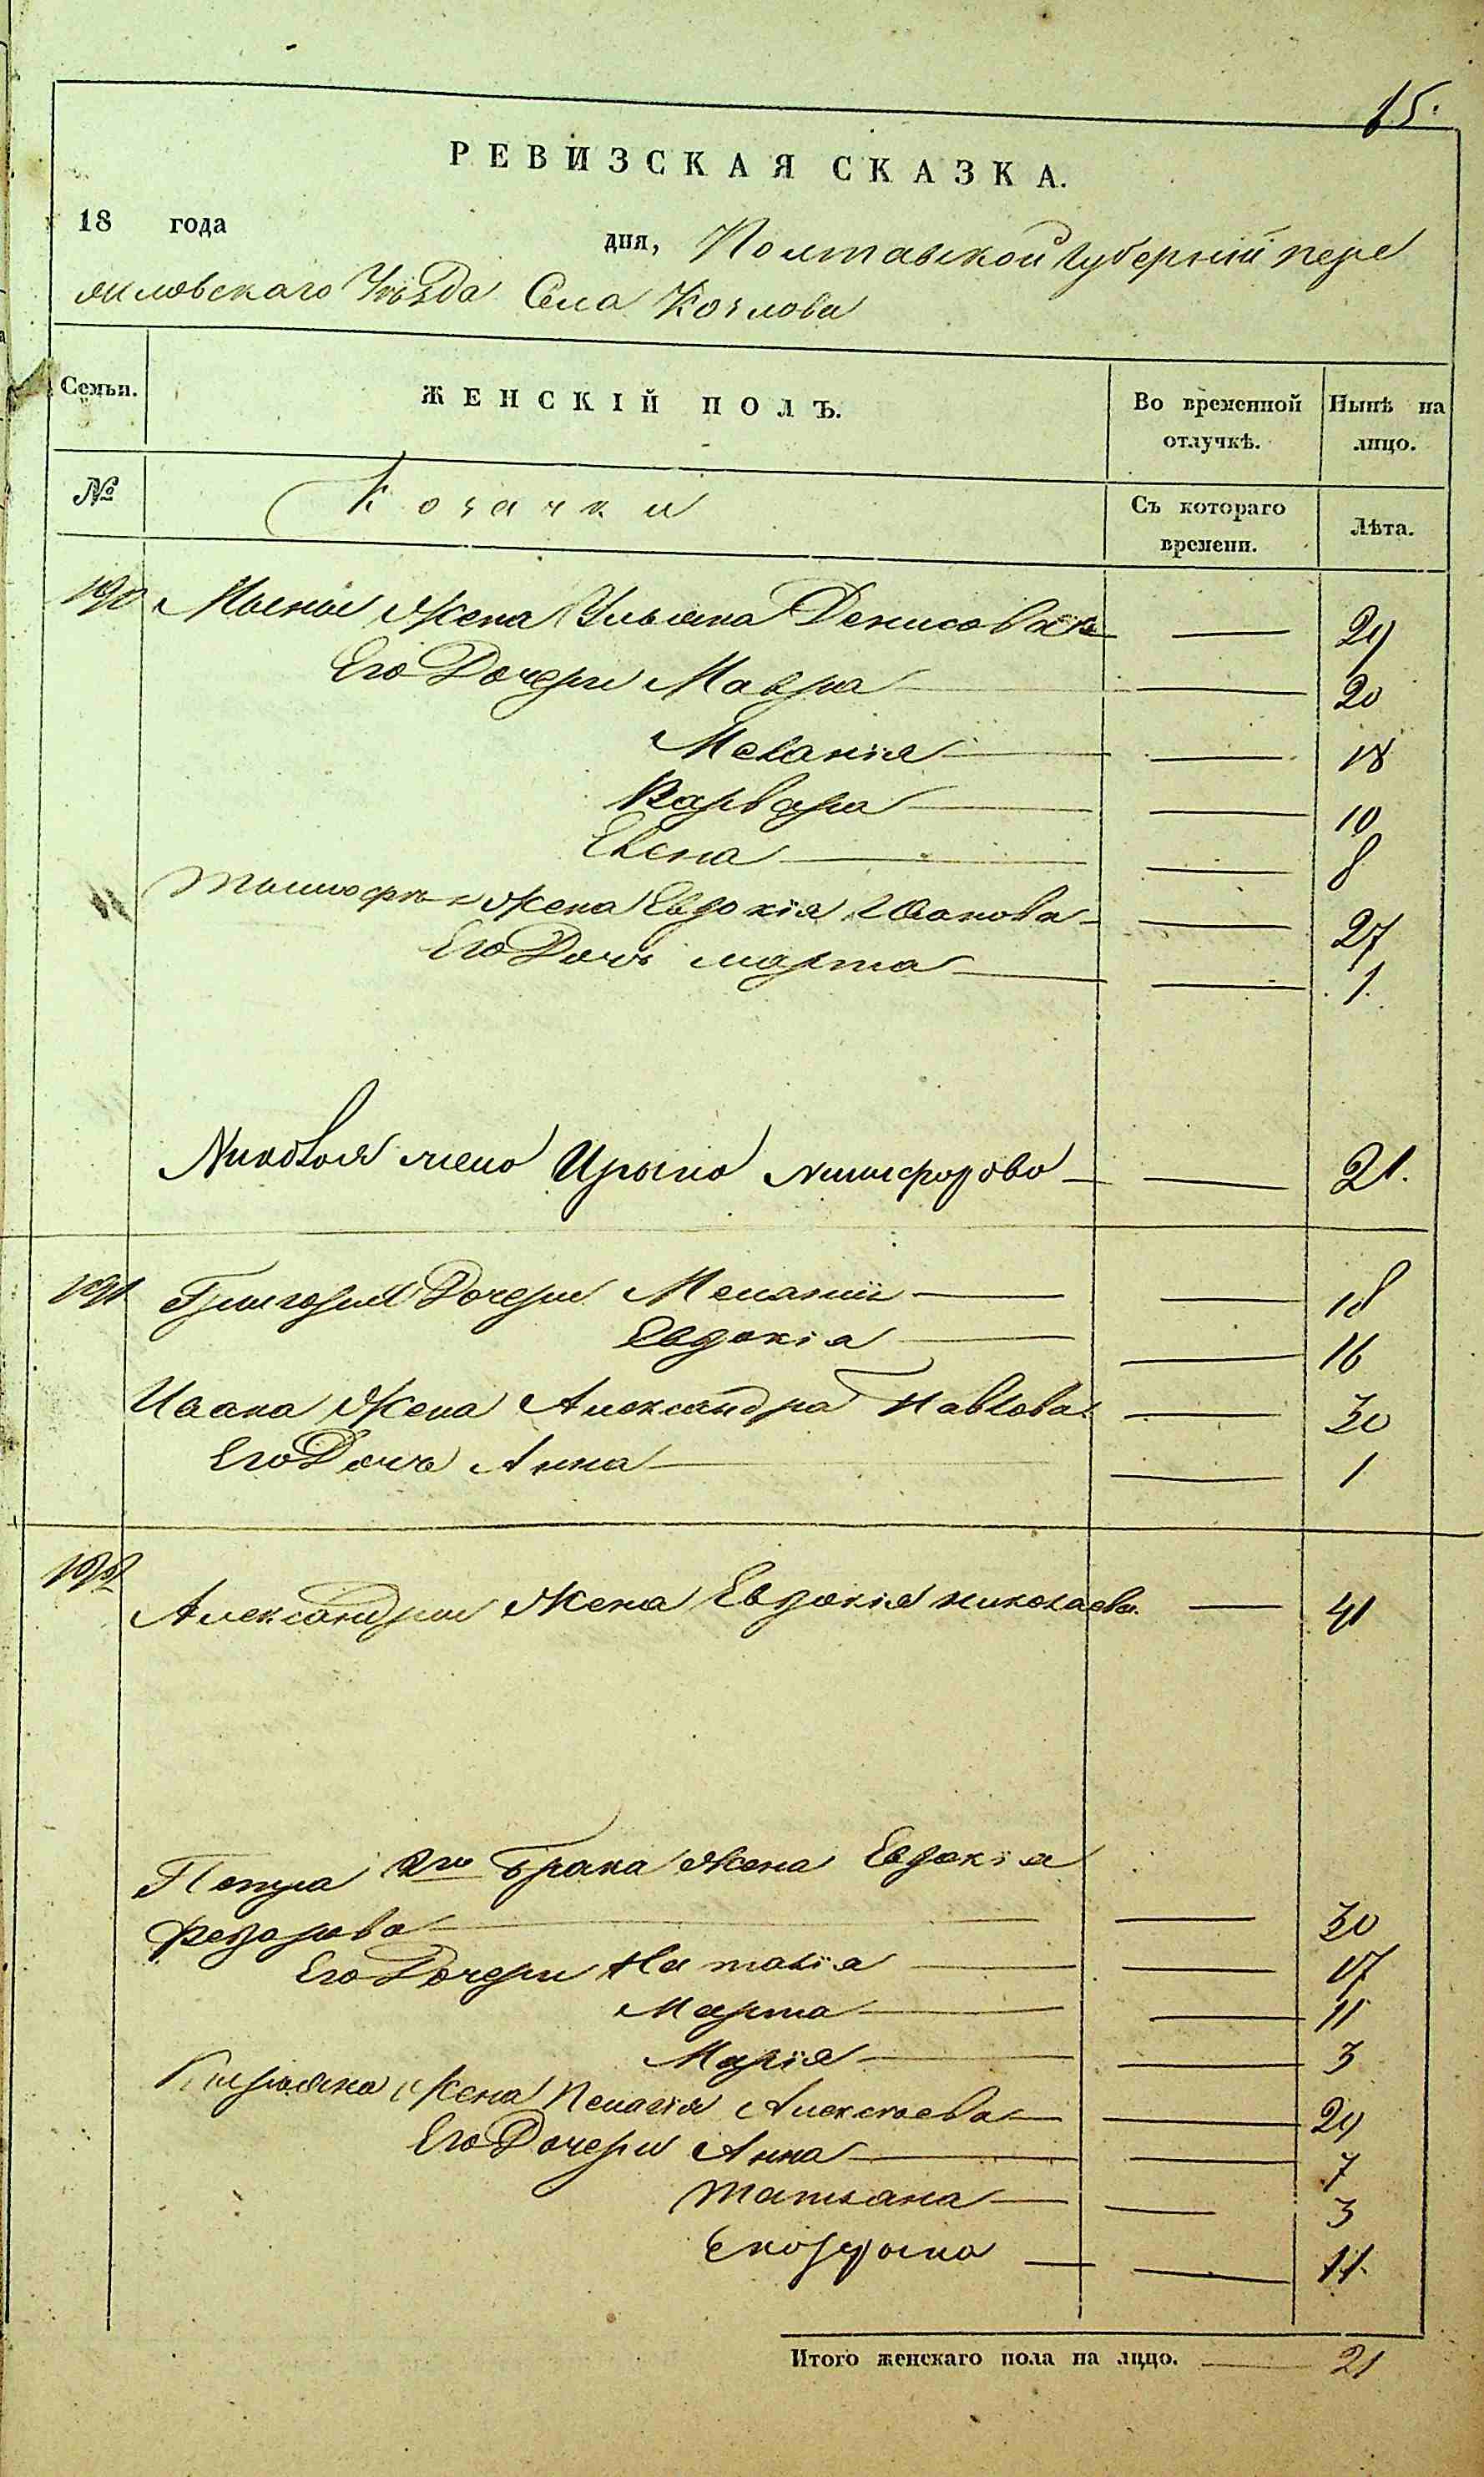 15.
РЕВИЗСКАЯ СКАЗКА.
18 года дня, Полтавской Губерніи пере
яиловскаго Уѣзда Села Козлова
Семьи. ЖЕНСКІЙ ПОЛЪ. Во временной отлучкѣ. Нынѣ на лицо.
№ Козачки Съ котораго времени. Лѣта.
190 Жена Ульяна Денисова 29
Его Дочери Мавра 20
Меланія 18
Варвара 10
Елена 8
Тимофея Жена Евдокія Иванова 27
Его Дочь марта 1.
Николая жена Ирина Никифорова 21.
191 Григорія Дочери Меланіи 18
Евдокія 16
Ивана Жена Александра Павлова 30
Его Дочь Анна 1
192
Александра Жена Евдокія николаева. 41
Петра 2го Брака Жена Евдокія
Федорова 30
Его Дочери Наталія 17
Марта 11
Марія 3
Кирьяна Жена Пелагія Алексѣева 29
Его Дочери Анна 7
Татьяна 3
11.
Итого женскаго пола на лицо. 21